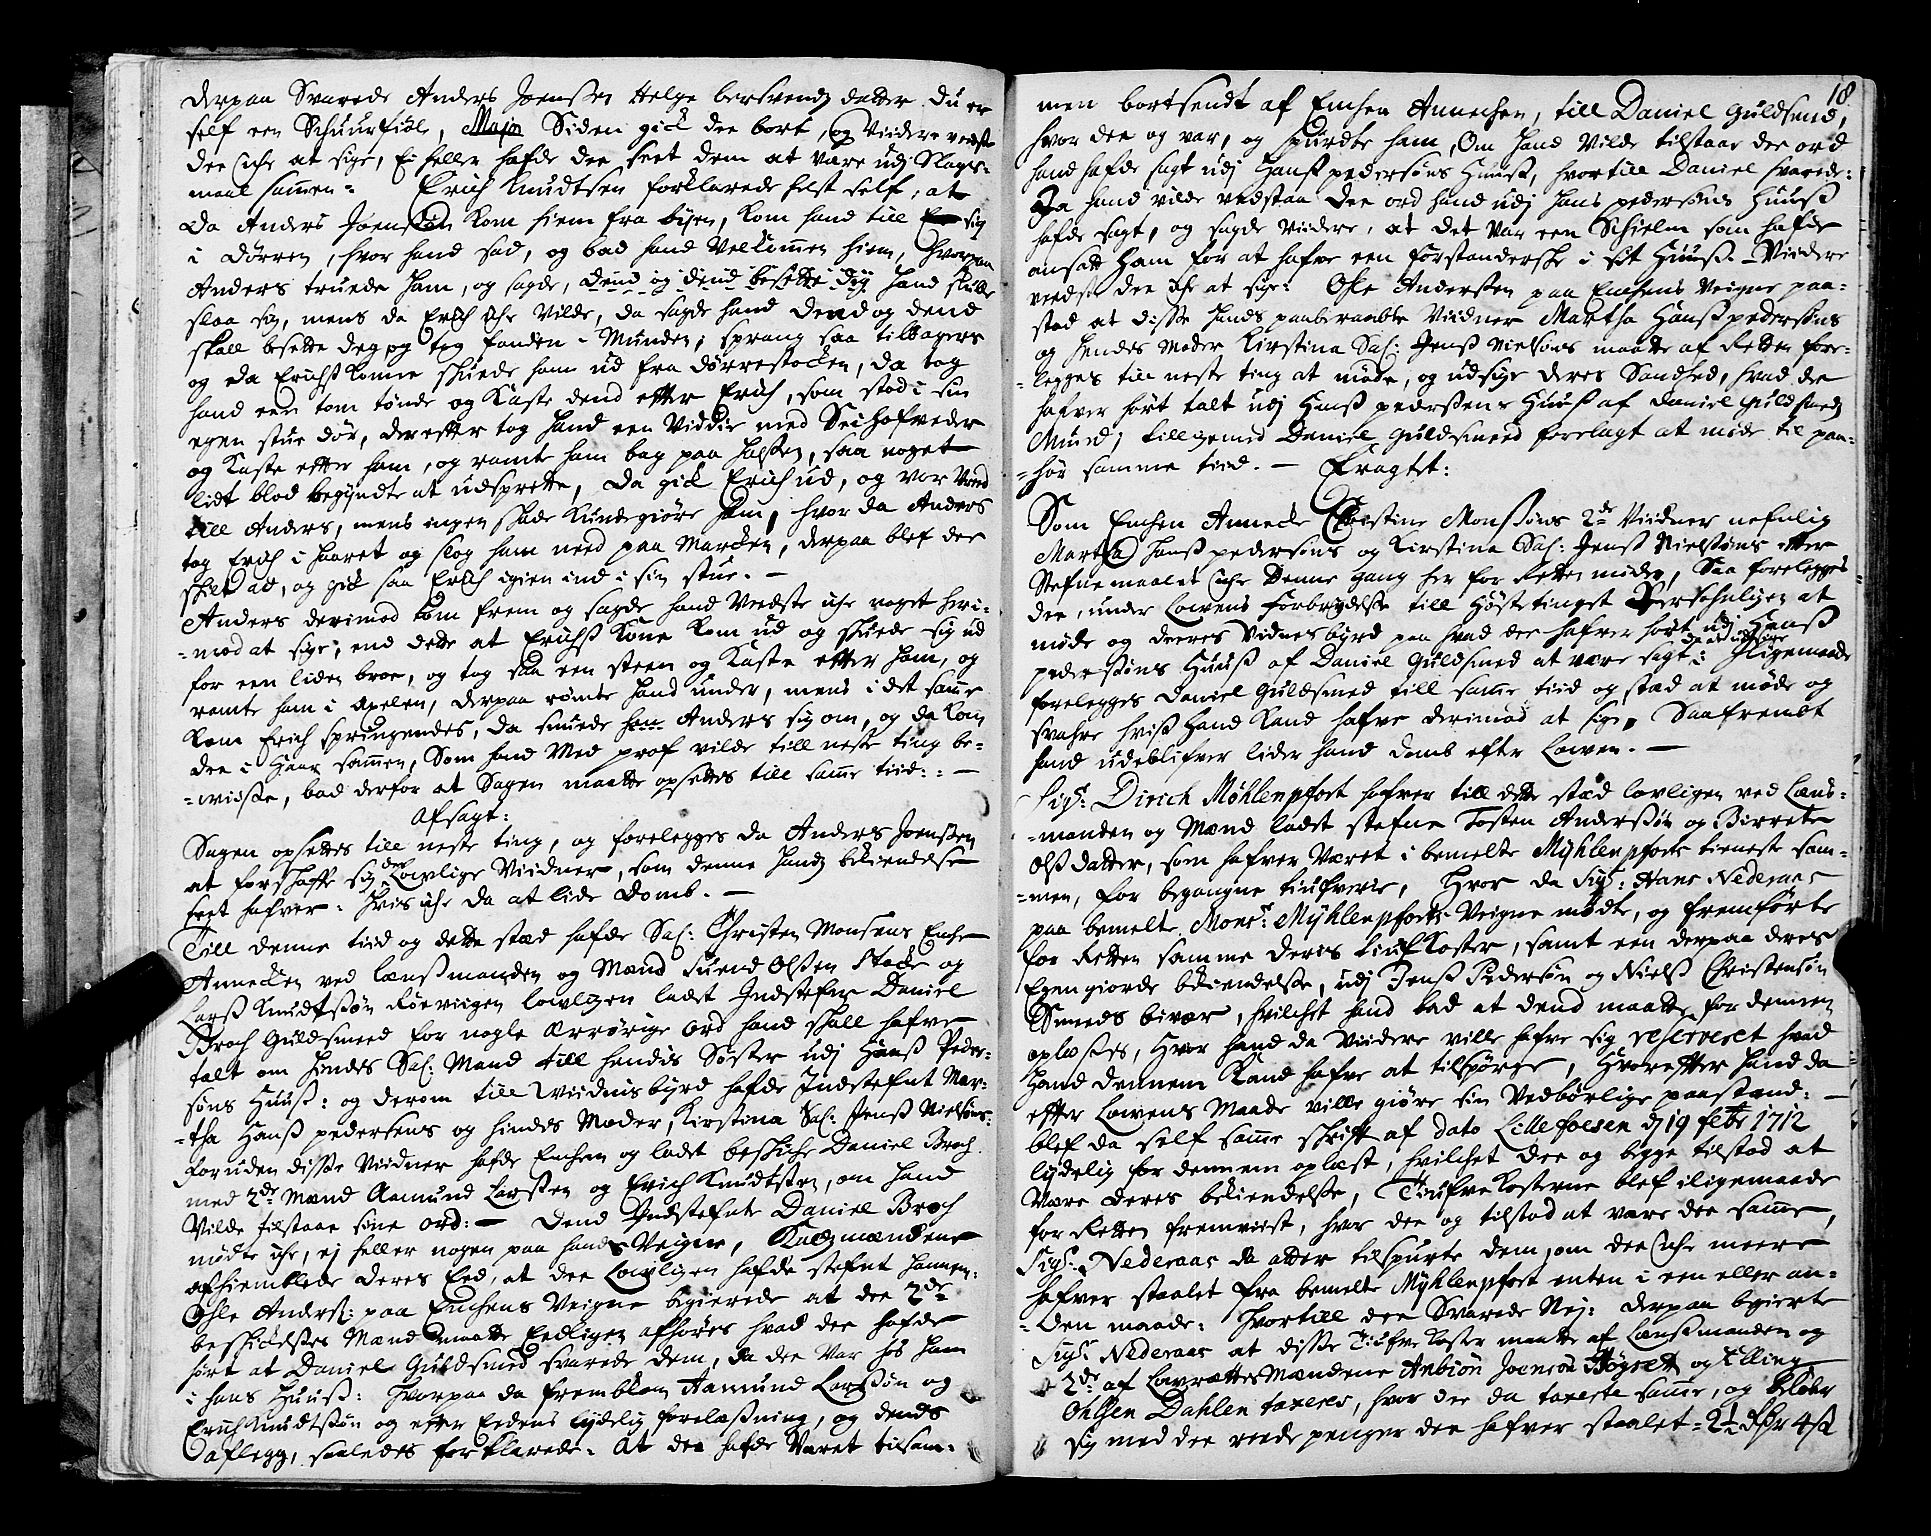 derpaa Svarede Anders Joenßen Helge bersvendz datter du er
self een Schuurfiöl, Major Siden gick dee bort, og Viidere veedste
dee iche at sige, Ei heller hafde dee seet dem at være udj Slags-
maal sammen - Erich Knudtsen forklarede helst self, at
da Anders Joensøn kom hiem fra byen, kom hand till sig
i dørren, hvor hand sad, og bad hand Velkommen hiem, hvorpaa
Anders truede ham, og sagde, dend og dend besette dig hand skulle
slaa sig, mens da Erich iche Vilde, da sagde hand dend og dend
skall besette deg og tog fanden i Munden, sprang saa tilbagers
og da Erichs Konne skuede ham ud fra dørrestocken, da tog
hand een tom tønde og kaste dend efter Erich, som stod i sin
egen stue dør, derefter tog hand een Viddie med Seihofveder
og kaste efter ham, og ramte ham bag paa halsen, saa noget
lidt blod begyndte at udsprette, da gick Erich ud, og var Vreed
till Anders, mens ingen skade kunde giøre ham, hvor da Anders
tog Erich i haaret og slog ham need paa Marcken, derpaa blef dee
skilt ad, og gick saa Erich igien ind i sin stue. -
Anders derimod kom frem og sagde hand Veedste iche noget heri-
-mod at sige, end dette at Erichs Kone kom ud og skuede sig ud
for een liden broe, og tog saa een steen og kaste efter ham, og
ramte ham i Axelen, derpaa rømte hand under, mens i det samme
kom Erich springendes, da snuede ham Anders sig om, og da kom
dee i haar sammen, Som hand Med prof vilde till neste ting be-
-wiisse, bad derfor at Sagen maatte opsettes till samme tiid: -
Afsagt:
Sagen opsettes till neste ting, og forelegges da Anders Joenssen
at forschaffe sig de Lovlige Viidner, som denne handz bekiendelse
seet hafver. hvis iche da at lide domb. -
Till denne tiid og dette stæd hafde Sal: Christen Monsens Enche
Annecken ved lænßmanden og Mænd Suend Olßen Stocke og
Larß Knudtßøn Røeviigen lovligen ladet Indstefne Daniel
Broch Guldsmeed for nogle Ærrørige ord hand skall hafve
talt om hindes Sal: Mand till hendis Søster udj Hanß Peder-
søns Huuß: og derom till Wiidnisbyrd hafde Indstefnt Mar-
-tha Hanß pedersens og hindes Moder Kirstina Sal: Jenß Nielsøns:
Foruden disse Viidner hafde Enchen og ladet beskiche Daniel Broch
med 2de Mænd Aamund Larssen og Erich Knudtsen, om hand
Vilde tilstaae sine ord: - Dend Indstefnte Daniel Broch
mødte iche, ej heller nogen paa hands Veigne, Kaldzmændene
afhiemblede deres Eed, at dee Lovligen hafde stefnt hannem:
Ohle Anders: paa Enchens Veigne begierede at dee 2de
beskickelses Mænd maatte Eedligen afhøres hvad dee hafde
hørt at Daniel Guldsmed svarede dem, da dee Var hos ham
i hans Huuß: hvorpaa da frembkom Aamund Larsøn og
Erich Knudtsøn og efter Eedens lydelig forelæsning, og dends
aflegg, saaledes forklarede. At dee hafde Varet tilsam-
18
men bortsendt af Enchen Annechen, till Daniel Guldsmed,
hvor dee og var, og spurdte ham, Om hand Vilde tilstaae dee ord
hand hafde sagt udj Hanß pedersøns Huuß, hvortill Daniel svarede:
Ja hand vilde vedstaae dee ord hand udj Hans pedersøns Huuß
hafde sagt, og sagde viidere, at det Var een Schielm som hafde
ansatt Ham for at hafve een forstanderske i sit Huuß. - Viidere
veedste dee iche at sige: Ole Anderßen paa Enchens Veigne paa-
stod at disse hands paaberaabte Viidner Martha Hanßpedersøns
og hendes Moder Kirstina Sal: Jenß Nielsøns maatte af Retten fore-
-legges till neste ting at møde, og udsige deres Sandhed, hvad de
hafver hørt talt udj Hanß pedersens Huuß af Daniel Guldsmedz
Mund, tilligemed Daniel Guldsmeed forelagt at møde til paa-
-hør samme tiid. - Eragtet:
Som Enchen Annecke Christine Monßøns 2de Viidner nefnlig
Martha Hanß pedersøns og Kirstina Sal: Jenß Nielsøns efter
Stefnemaalet iche denne gang her for Retten møder, Saa forelegges
dee, under Lowens forbrydelse till Høstetinget Persohnligen at
møde og deeres Vidnesbyrd paa hvad dee hafver hørt udj Hanß
pedersøns Huuß af Daniel Guldsmed at være sagt: de at udsige Iligemaade
forelegges Daniel Guldsmed till samme tiid og stæd at møde og
svahre hviß Hand kand hafve derimod at sige, Saafremt
hand udeblifver lider hand domb efter Lowen. -
Sigr: Dirich Møhlenpfort hafver till dette stæd lovligen ved Læns-
-manden og Mænd ladet stefne Tosten Andersøn og Birrete
Olßdatter, som hafver Været i bemelte Mÿhlenpforts tieneste sam-
-men, for begangne tiufverie, Hvor da Sigr: Hans Nederaas
paa bemelte Monsr: Mÿhlenpforts Veigne mødte, og fremførte
for Retten samme deris tiufKoster, samt een derpaa deres
Egen giorde bekiendelße, udj Jenß Pedersøn og Nielß Christensøn
Smeeds bivær, hvilchet hand bad at dend maatte for dennem
oplæses, Hvor hand da Viidere ville hafve sig reserveret hvad
hand dennem kand hafve at tilspørge, Hvorefter hand da
efter Lowens Maade ville giøre sin Vedbørlige paastand: -
blef da self samme skrift af dato Lillefosen dj 19 febr 1712
lydelig for dennem oplæst, hvilchet dee og begge tilstod at
være deres bekiendelße, Tiufvekosterne blef iligemaade
for Retten fremviist, hvor dee og tilstod at være dee samme,
Sigr: Nederaas da atter tilspurte dem, om dee iche meere
hafver staalet fra bemelte Mÿhlenpfort enten i een eller an-
-den maade: hvortill dee Svarede Nej: derpaa begierte
Sigr: Nederaas at disse Tiufve koster maatte af Lænßmanden og
2de af Lavrættes Mændene Anbiøn Joensøn Høgset og Elling
Ohlsen Dahlen taxeres, hvor dee da taxerte samme, og beløber
sig med dee reede penger dee hafver staalet - 2½ dhr 4 ß